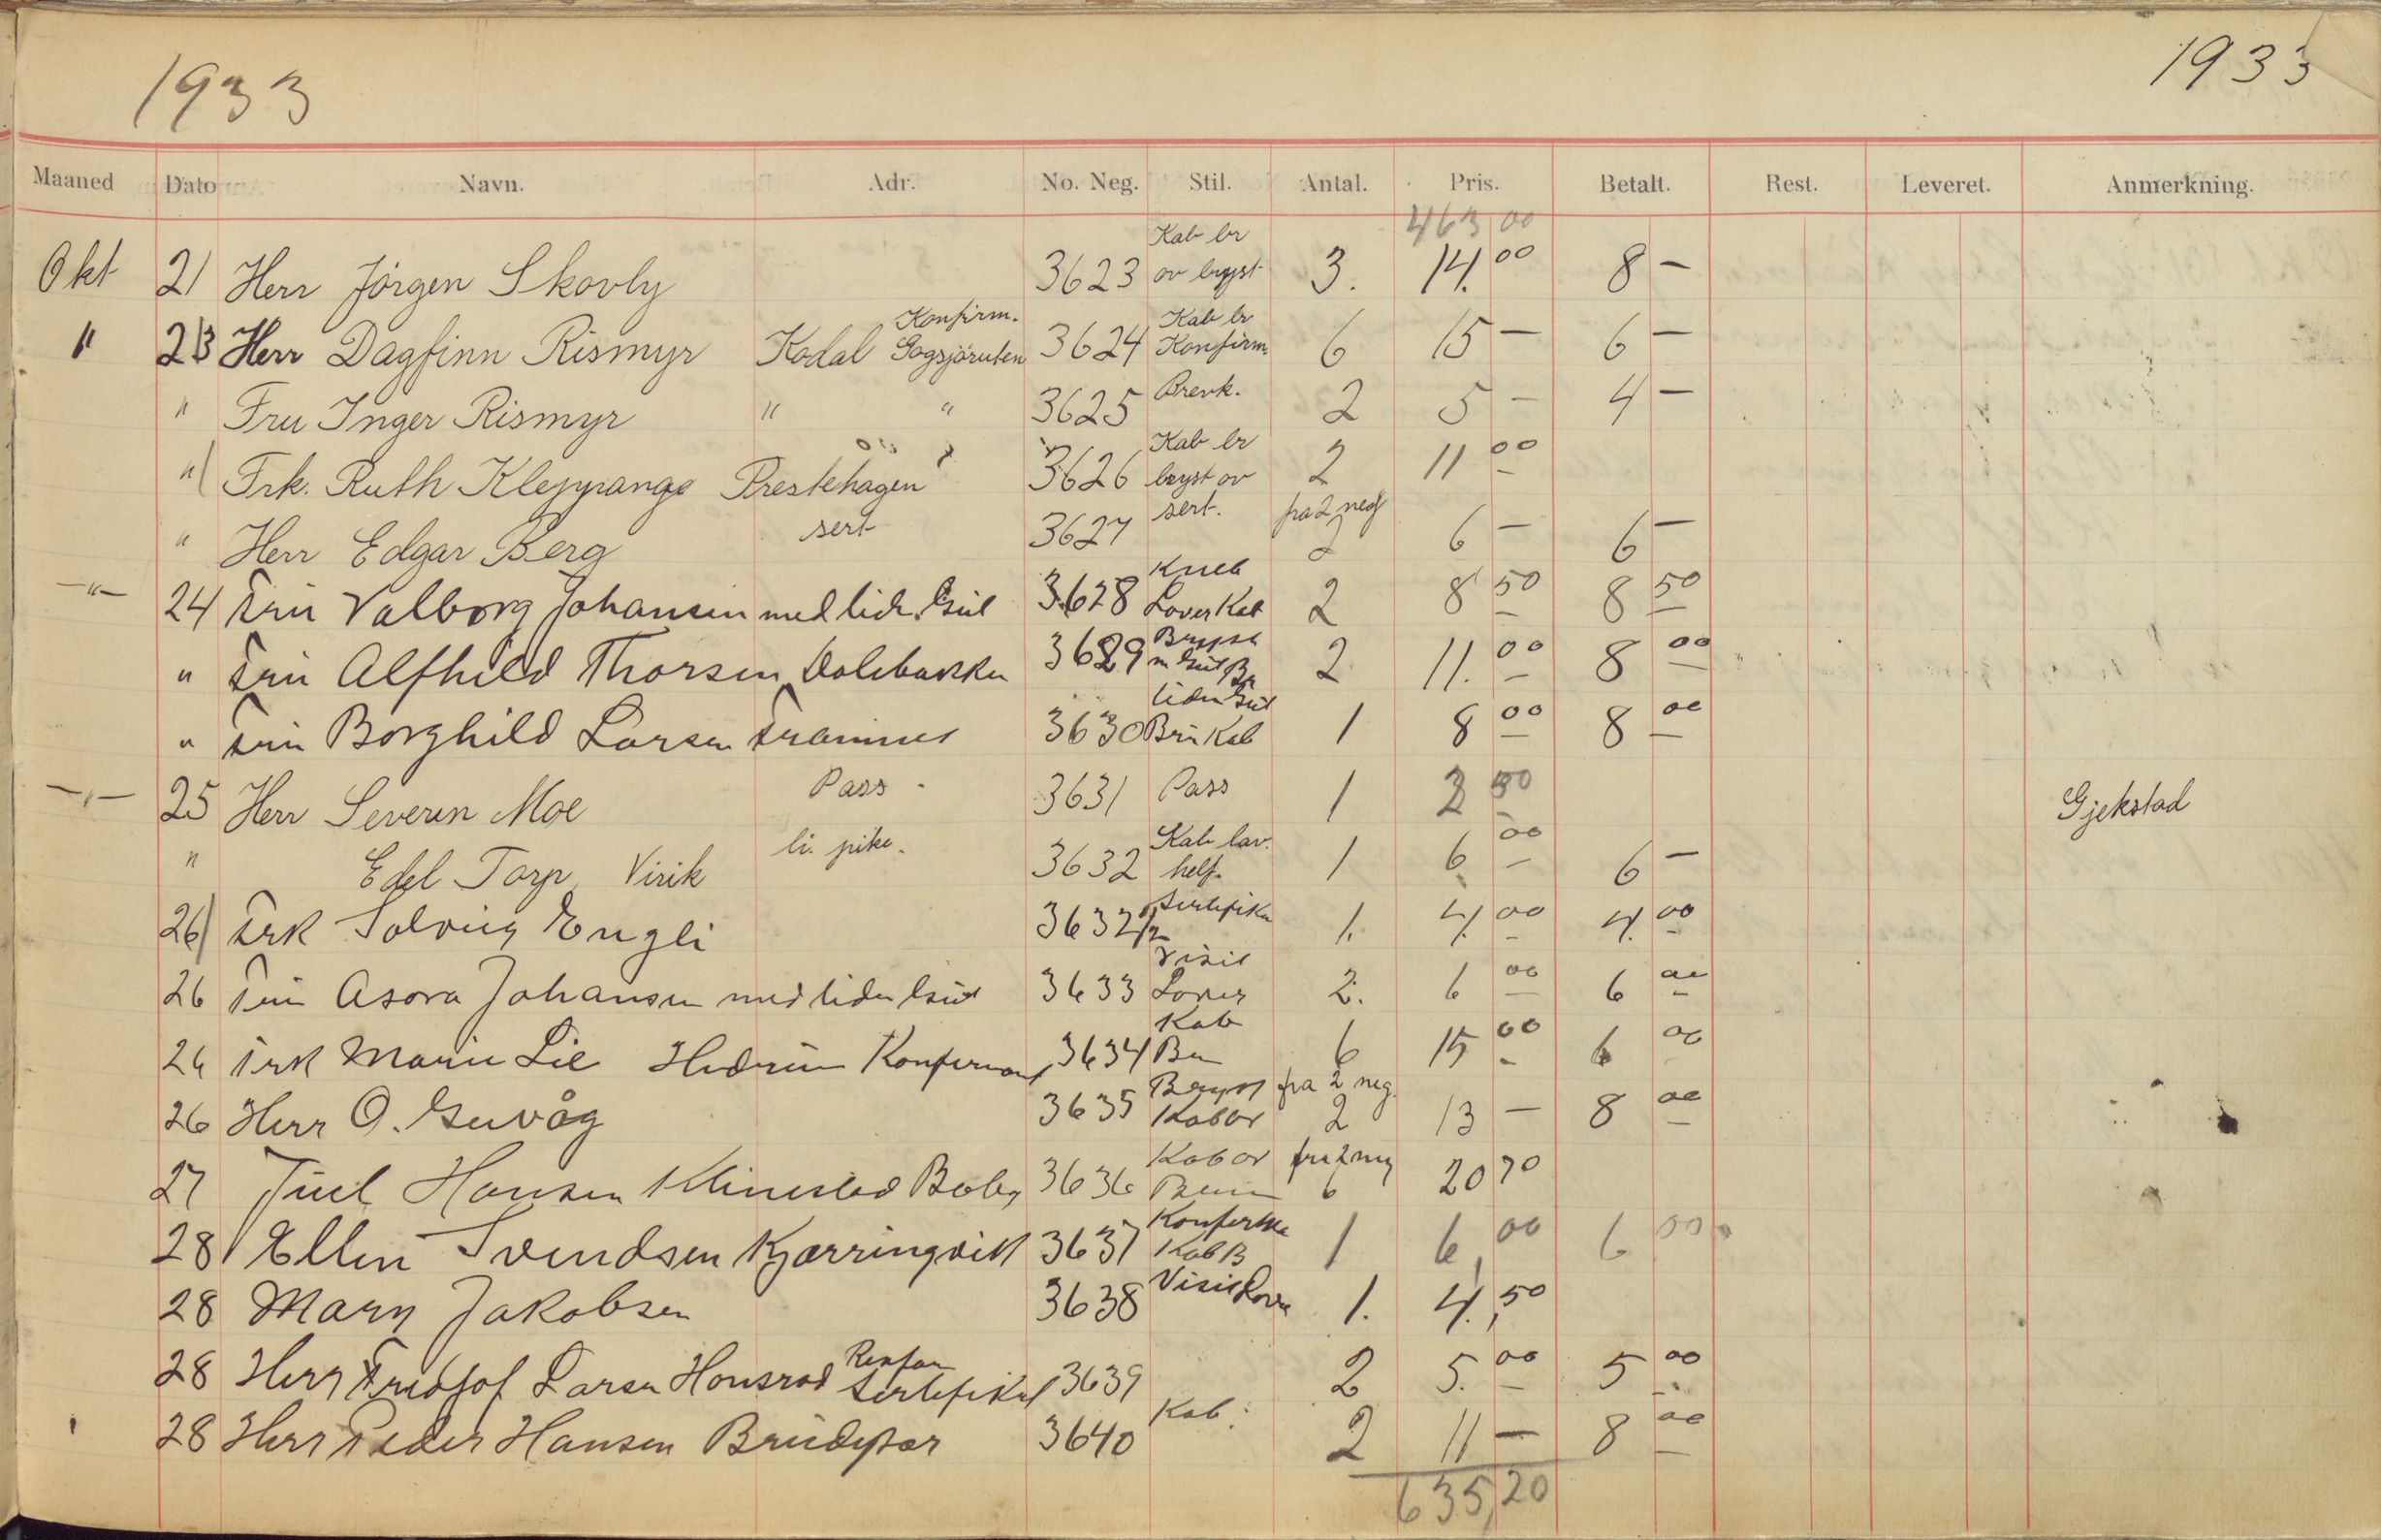 1933 1933
Maaned Dato Navn. Adr. No. Neg. Stil. Antal. Pris. Betalt. Rest. Leveret. Anmerkning.
463 00
Okt 21 Herr Jörgen Skovly 3623 Kab br ov bryst 3. 14.00 8 –
" 23 Herr Dagfinn Rismyr Kodal Konfirm. Gogsjöruten 3624 Kab br Konfirm. 6 15 – 6 –
" Fru Inger Rismyr " " 3625 Brevk. 2 5 – 4 –
" Frk. Ruth Kleppange Prestehagen 3626 Kab br bryst ov 2 11 00
" Herr Edgar Berg sert 3627 sert. fra 2 neg 2 6 – 6 –
–"– 24 Fru Valborg Johansen med liden Gut 3628 Kneb Lover Kab 2 8 50 8 50
" Fru Alfhild Thorsen Dolebakken 3629 Bryst m Gut Br 2 11. 00 8 00
" Fru Borghild Larsen Framnes 3630 liden Gut Brü Kab 1 8 00 8 00
–"– 25 Herr Severin Moe Pass 3631 Pass 1 50 Gjekstad
" Edel Torp Virik li. pike. 3632 Kab lav. helf. 1 6 00 6 –
26 Frk Solveig Engli 3632 1/2 Sertifika 1. 4. 00 4. 00
26 Fru Asora Johansen med liden Gut 3633 Visit Lover 2. 6 00 6 00
26 Frk Marie Lie Hedrum Konfirmant 3634 Kab Brun 6 15 00 6 00
26 Herr O. Guvåg 3635 Bryst Kabov fra 2 neg. 2 13 – 8 00
27 Juel Hansen Klinestad Baby 3636 Kabov Brun fra 2 neg 6 20 70
28 Ellen Svendsen Kjærringvik 3637 Konfirma Kab B 1 6, 00 6 00
28 Mary Jakobsen 3638 Visit Lover 1. 4, 50
28 Herr Fridjof Larsen Honsrød Sertifikat 3639 2 5. 00 5 00
28 Herr Peder Hansen Brudepar 3640 Kab. 2 11 – 8 00
635,20